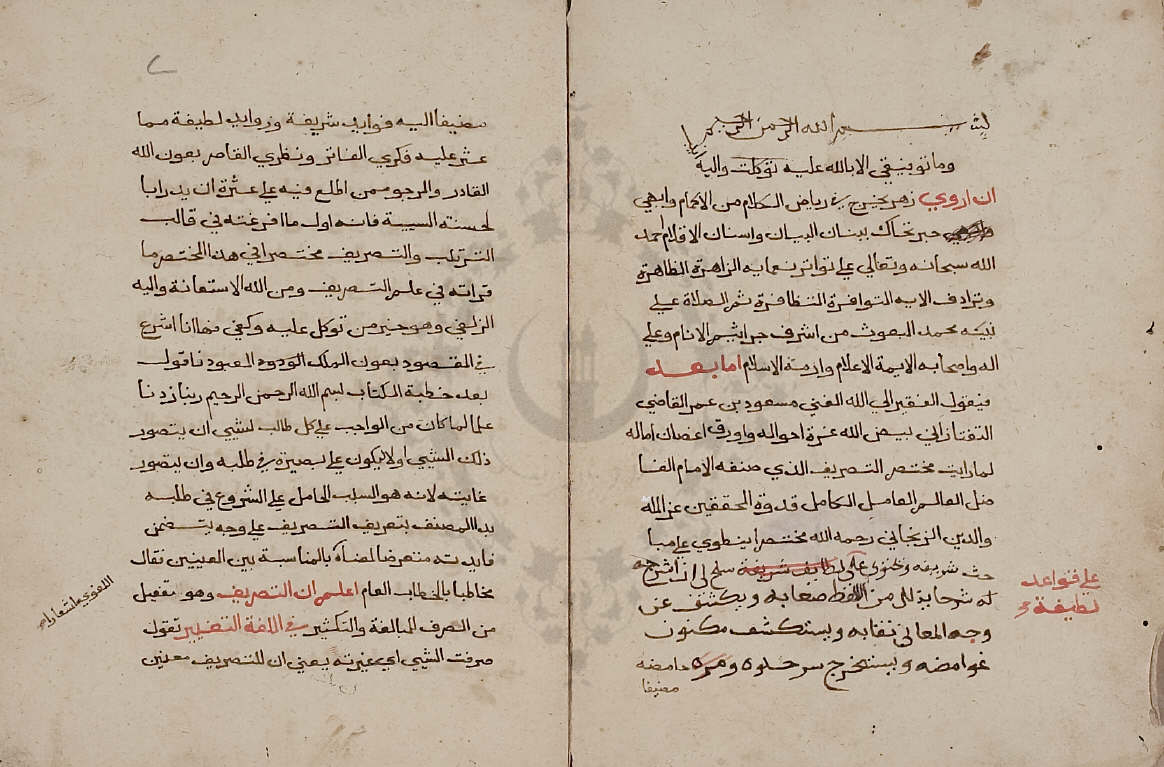 بسم الله الرحمن الرحيم
وما توفيقي الا بالله عليه توكلت واليه
ان اروي زهر يخرج في رياض الكلام من الاكمام وابهي
حبر تحاك ببنان البيان واسنان الاقلام حمد
الله سبحانه وتعالي علي تواتر نعمايه الزاهرة الظاهرة
وترادف الايه المتوافرة المتظافرة ثم الصلاة علي
نبيه محمد المبعوث من اشرف جراثيم الانام وعلي
اله واصحابه الايمة الاعلام وازمة الاسلام اما بعد
فيقول الفقير الي الله الغني مسعود بن عمر القاضي
التفتازاني بيض الله غرة احواله واورق اغصان اماله
لما رايت مختصر التصريف الذي صنفه الامام الفا
ضل العالم العامل الكامل قدوة المحققين عز الملة
والدين الزنجاني رحمه الله مختصرا ينطوي علي مبا
حث شريفه ويحتوي علي لطايف شريفة سنح لي ان اشرحه
علي قواعد
لطيفة صح
له شرحا يذلل من اللفظ صعابه ويكشف عن
وجه المعاني نقابه ويستكشف مكنون
غوامضه ويستخرج سر حلوه ومره حامضه
مضيفا
مضيفا اليه فوايد شريفة وزوايد لطيفة مما
عثر عليه فكري الفاتر ونظري القاصر بعون الله
القادر والمرجو ممن اطلع فيه علي عثرة ان يدرا با
لحسنة السيية فانه اول ما افرغته في قالب
الترتيب والتصريف مختصرا في هذا المختصر ما
قراته في علم التصريف ومن الله الاستعانة واليه
الزلفي وهو حيز من توكل عليه وكفي فها انا اشرع
في المقصود بعون الملك الودود المعبود فاقول
بعد خطبة الكتاب بسم الله الرحمن الرحيم ربنا زدنا
علما لما كان من الواجب علي كل طالب لشيي ان يتصور
ذلك الشيي اولا ليكون علي بصيرة في طلبه وان يتصور
غايته لانه هو السبب الحامل علي الشروع في طلبه
بدا المصنف بتعريف التصريف علي وجه يتضمن
فايدته متعرضا لمعناه بالمناسبة بين المعنيين فقال
اللغوي
مخاطبا بالخطاب العام اعلم ان التصريف وهو تفعيل
من الصرف للمبالغة والتكثير في اللغة التغيير تقول
صرفت الشيي اي غيرته يعني ان للتصريف معنين